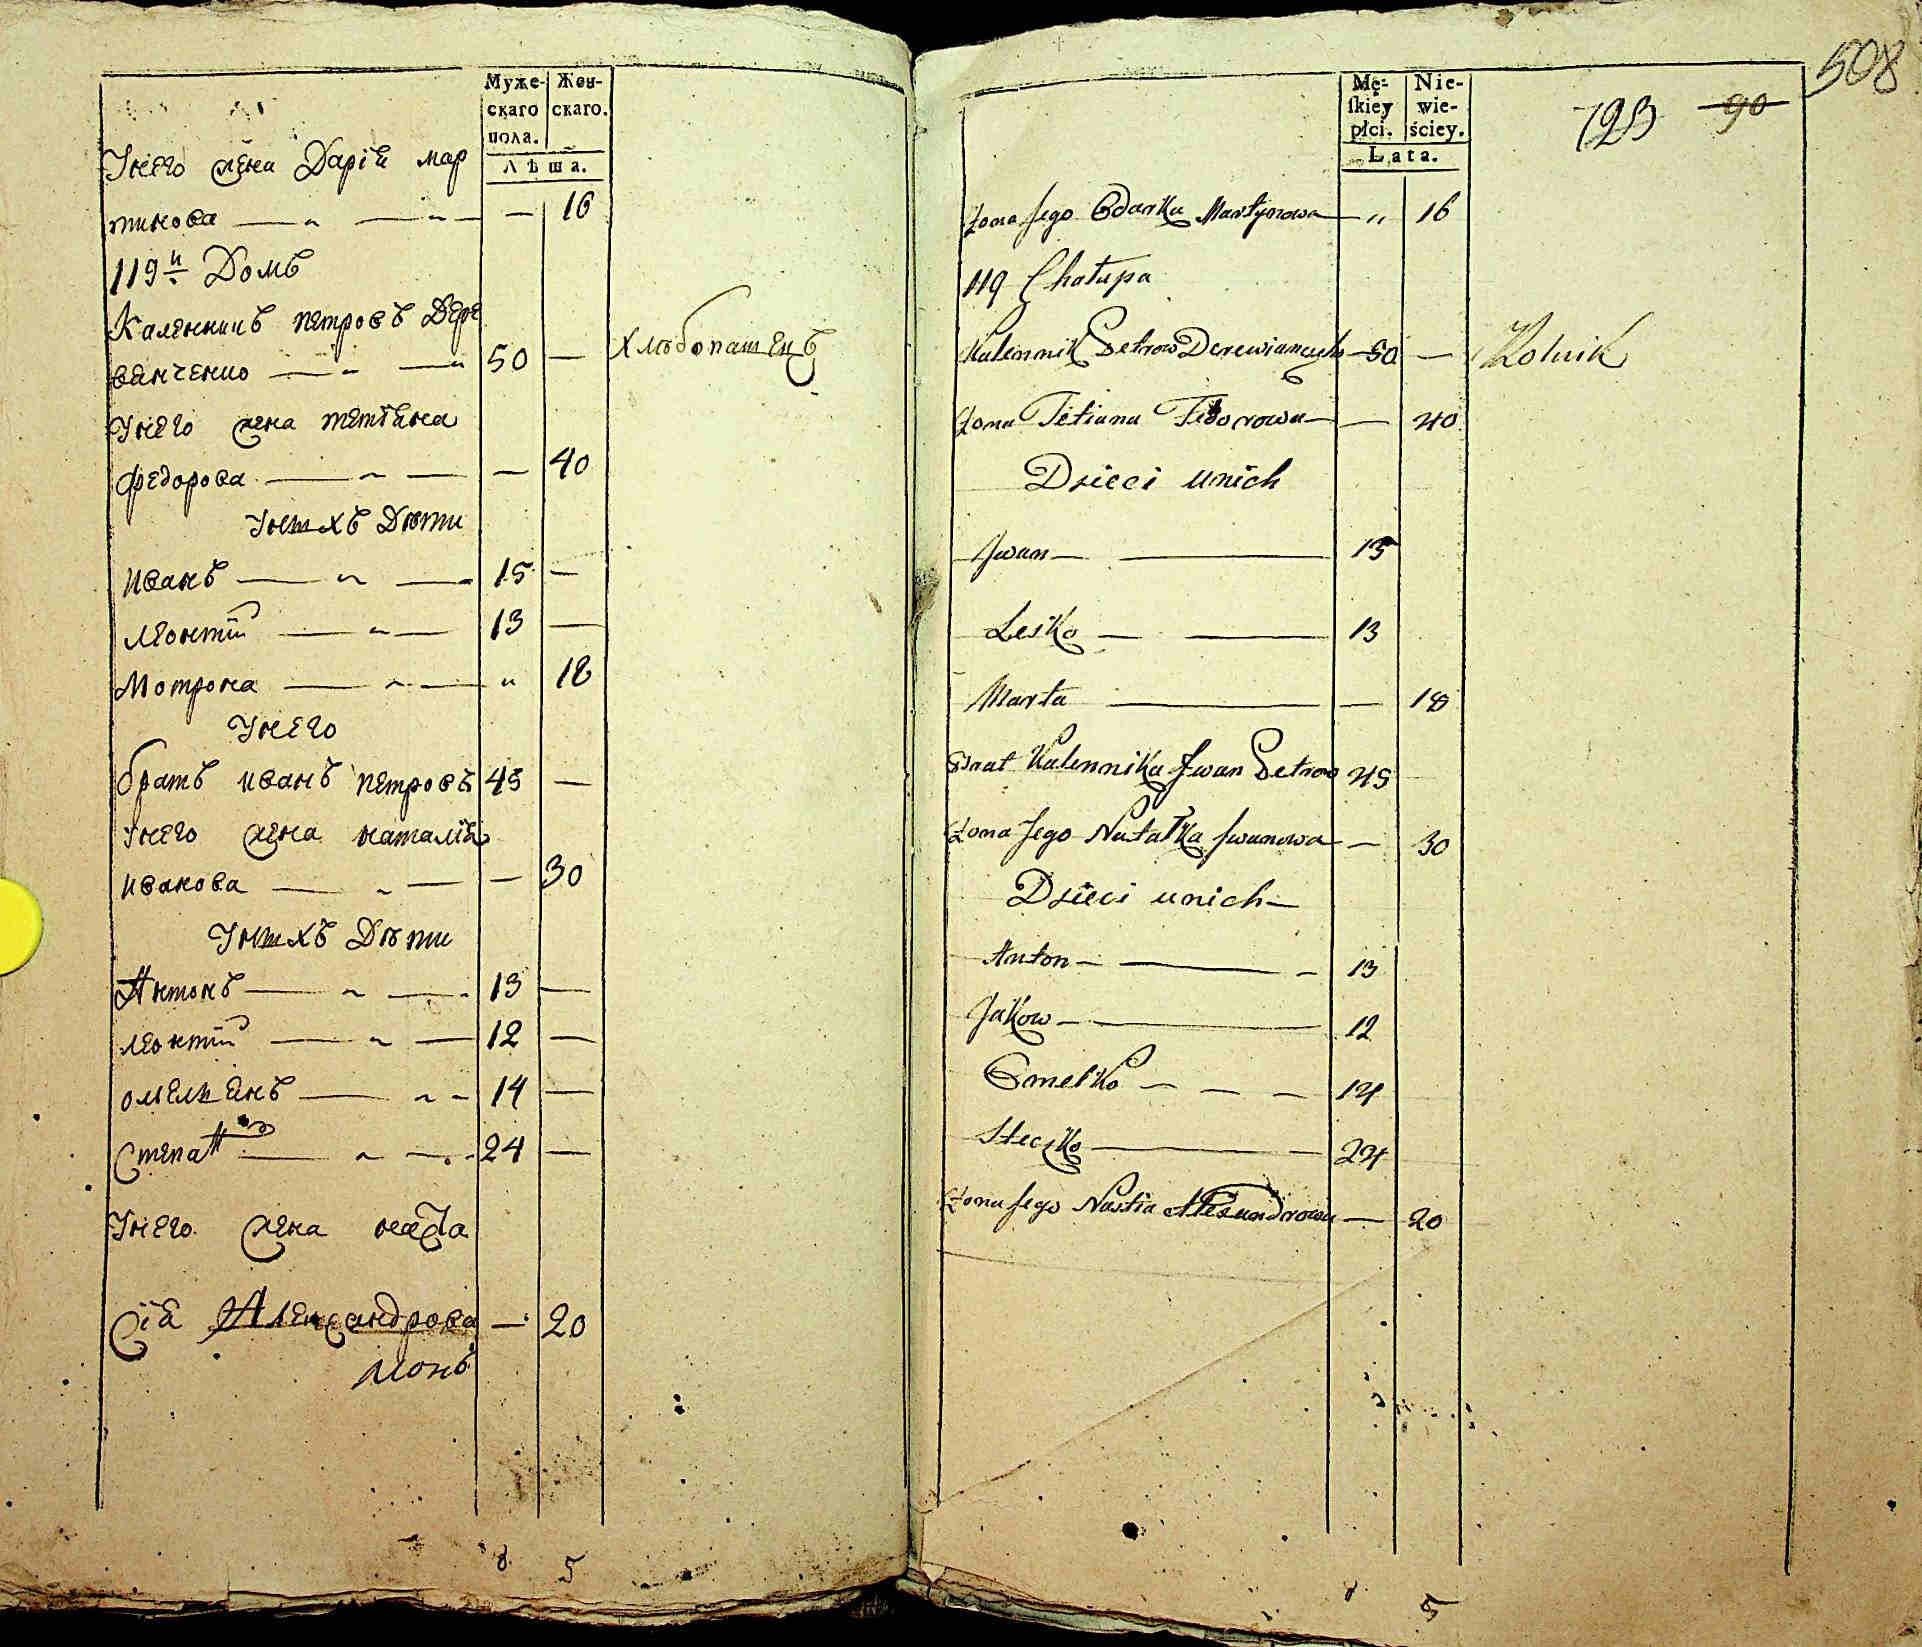 Муже- Жен-
скаго скаго.
пола.
Лѣта.
Унего жена Дарія мар
тинова — „ — „ — — 16
119й Домъ
Каленникъ петровъ Дере
вянченко — „ — „ 50 — хлѣбопашецъ
Унего жена тетіана
федорова — „ — — 40
Унихъ Дѣти
иванъ — „ — 15 —
леонтій — „ — 13 —
Мотрона — „ — „ 18
Унего
братъ иванъ петровъ 45 —
унего жена наталія
иванова — „ — — 30
Унихъ Дѣти
Антонъ — „ — 13 —
леонтій — „ — 12 —
омелянъ — „ - 14 —
Степан — „ — 24 —
Унего жена наста
сія Александрова — 20
8 5
508
Mę- Nie-
skiey wie-
płci. ściey.
Lata.
90
Żona Jego Odarka Martynowa — „ 16
119 Chałupa
Kalennik Petrow Derewianczyko — 50 — Rolnik
Żona Tetiana Fedorowa — — 40
Dzieci unich
Jwan — — 15
Lesko — — 13
Marta — — 18
Brat Kalennika Jwan Petrow 45
Żona Jego Natałka Jwanowa — 30
Dzieci unich —
Anton — — - 13
Jakow — — 12
Omelko — — — 14
Steczko — — 24
Żona Jego Nastia Alexandrowa — 20
8 5